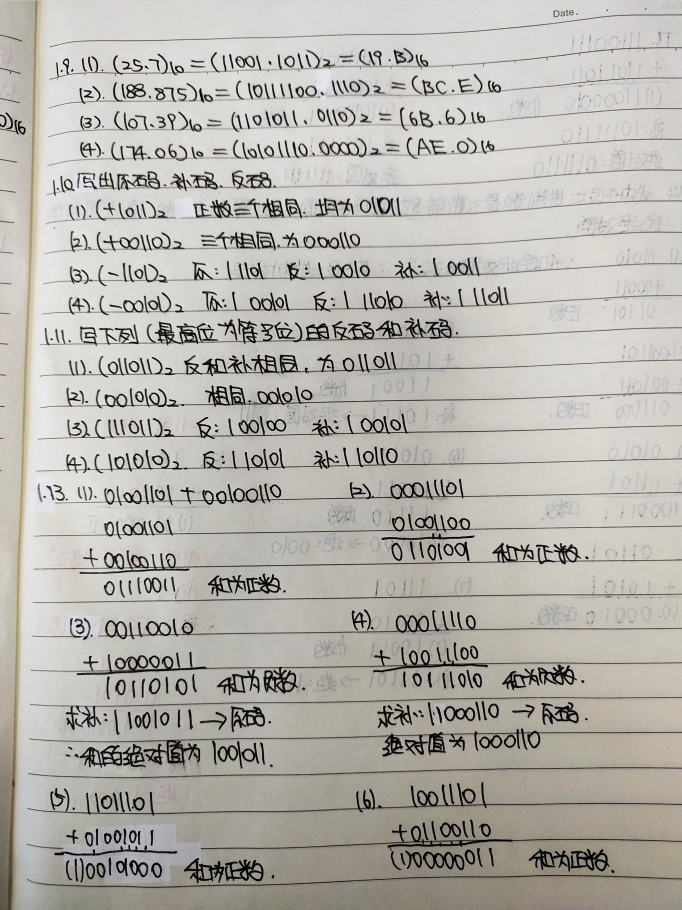 Date.
1.9. (1). (25.7)10 = (11001.1011)2 = (19.B)16
(2). (188.875)10 = (10111100.1110)2 = (BC.E)16
(3). (107.39)10 = (1101011.0110)2 = (6B.6)16
(4). (174.06)10 = (10101110.0000)2 = (AE.0)16
1.10. 写出原码.补码.反码.
(1). (+1011)2 正数三个相同.均为01011
(2). (+00110)2 三个相同.为000110
(3). (-1101)2 原:11101 反:10010 补:10011
(4). (-00101)2 原:100101 反:111010 补:111011
1.11. 写下列(最高位为符号位)的反码和补码.
(1). (011011)2 反和补相同,为011011
(2). (001010)2. 相同.001010
(3). (111011)2 反:100100 补:100101
(4). (101010)2. 反:110101 补:110110
1.13. (1). 01001101 + 00100110 (2). 00011101
01001101 01001100
+00100110 01101001 和为正数.
01110011 和为正数.
(3). 00110010 (4). 00011110
+10000011 +10011100
10110101 和为负数. 10111010 和为负数.
求补:11001011→原码. 求补:11000110→原码.
∴和的绝对值为1001011. 绝对值为1000110
(5). 11011101 (6). 10011101
+01001011 +01100110
(1)00101000 和为正数. (1)00000011 和为正数.